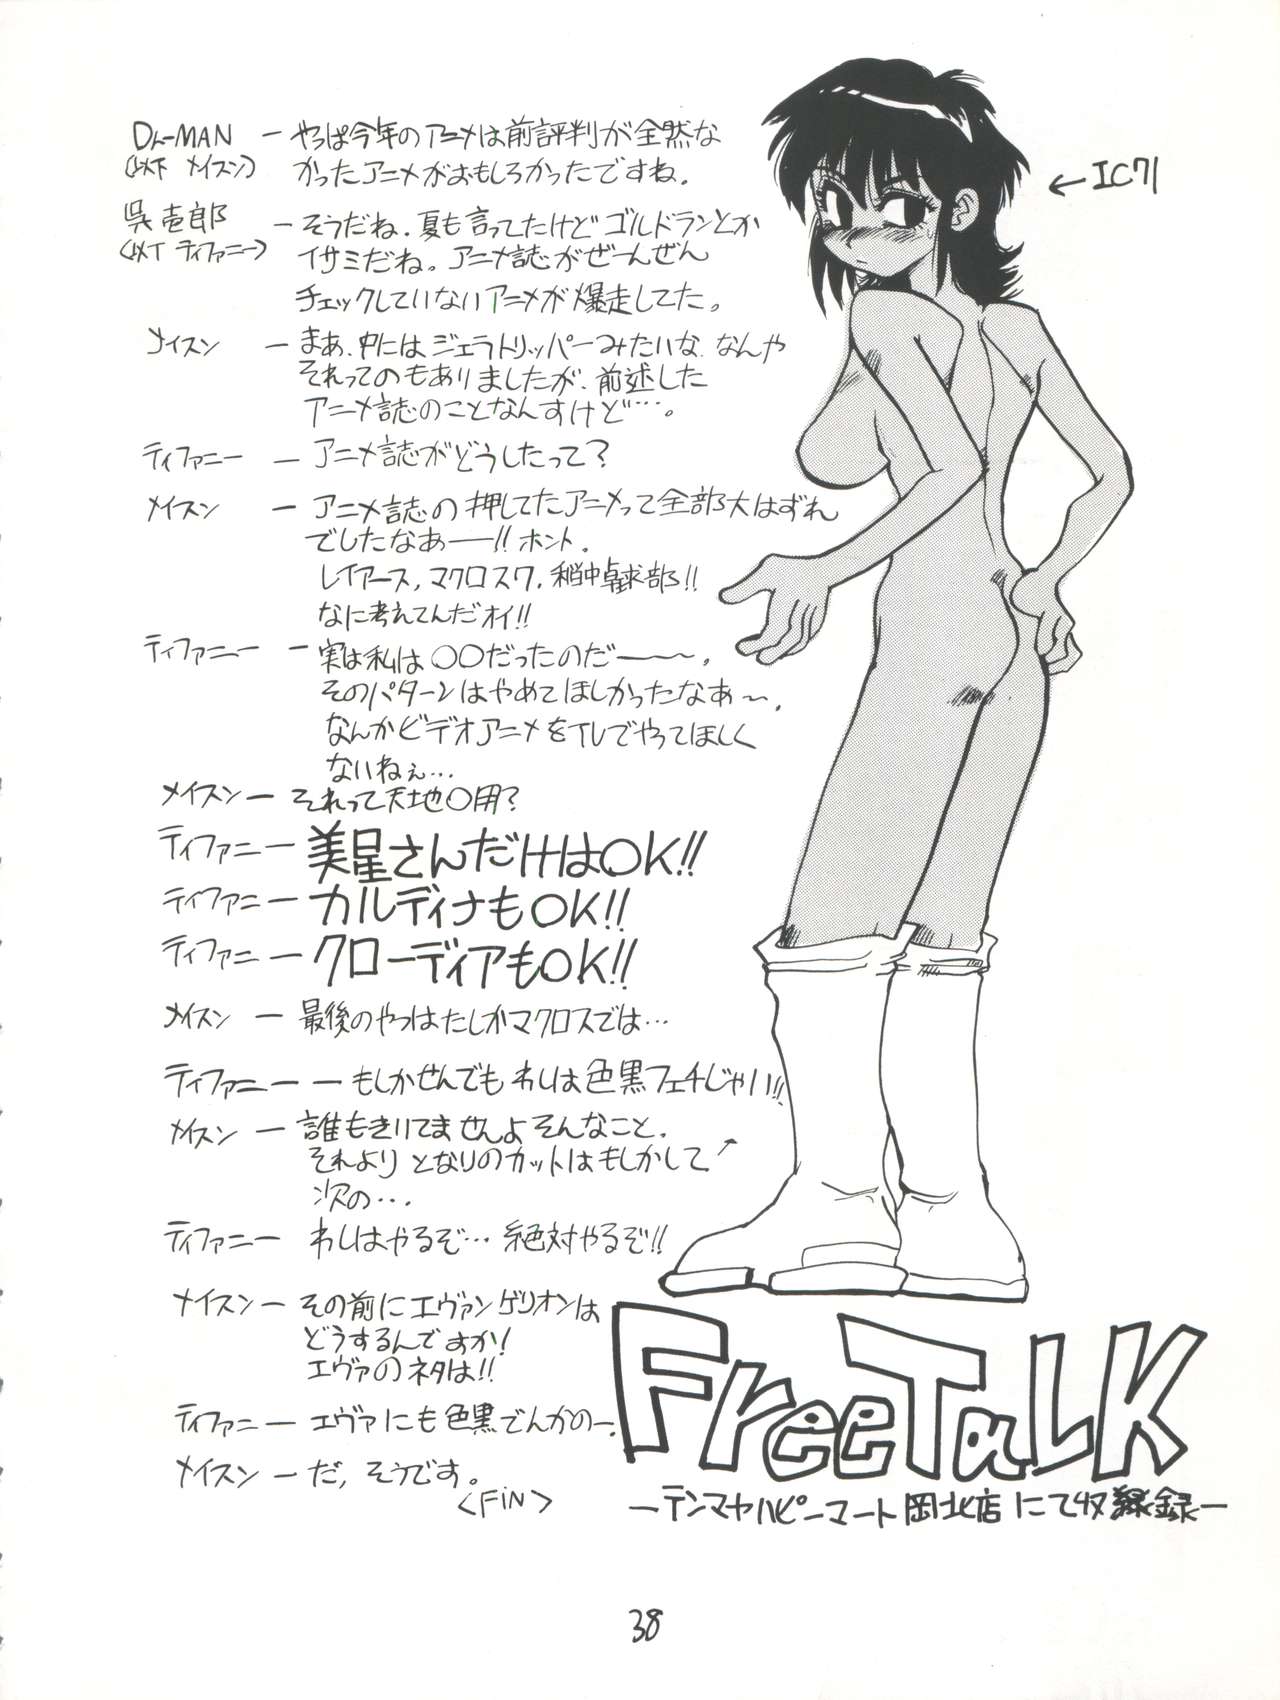 Dr-MAN ー やっぱ今年のアニメは前評判が全然な
(以下 メイスン) かったアニメがおもしろかったですね。
呉壱郎 ーそうだね、夏も言ってたけどゴルドランとか
(以下 ティファニー) イサミだね。アニメ誌がぜーんぜん
チェックしていないアニメが爆走してた。
メイスン ー まあ、中にはジェラトリッパーみたいな、なんや
それってのもありましたが、前述した
アニメ誌のことなんすけど…。
ティファニー ー アニメ誌がどうしたって?
メイスン ー アニメ誌の押してたアニメって全部大はずれ
でしたなあ──!! ホント。
レイアース, マクロス7, 稲中卓球部!!
なに考えてんだオイ!!
ティファニー ー 実は私は〇〇だったのだー〜。
そのパターンはやめてほしかったなあ〜。
なんかビデオアニメをTVでやってほしく
ないねぇ…
メイスン ー それって天地〇用?
ティファニー ー 美星さんだけはOK!!
ティファニー ー カルディナもOK!!
ティファニー ー クローディアもOK!!
メイスン ー 最後のやつはたしかマクロスでは…
ティファニー ー もしかせんでもわしは色黒フェチじゃい!!
メイスン ー 誰もきいてませんよそんなこと。
それよりとなりのカットはもしかして↗
次の…。
ティファニー わしはやるぞ… 絶対やるぞ!!
メイスン ー その前にエヴァンゲリオンは
どうするんですか!
エヴァのネタは!!
ティファニー ー エヴァにも色黒でんかのー。
メイスン ー だ, そうです。
<FiN>
← IC71
FreeTaLK
ーテンマヤハピーマート岡北店にて収録ー
38